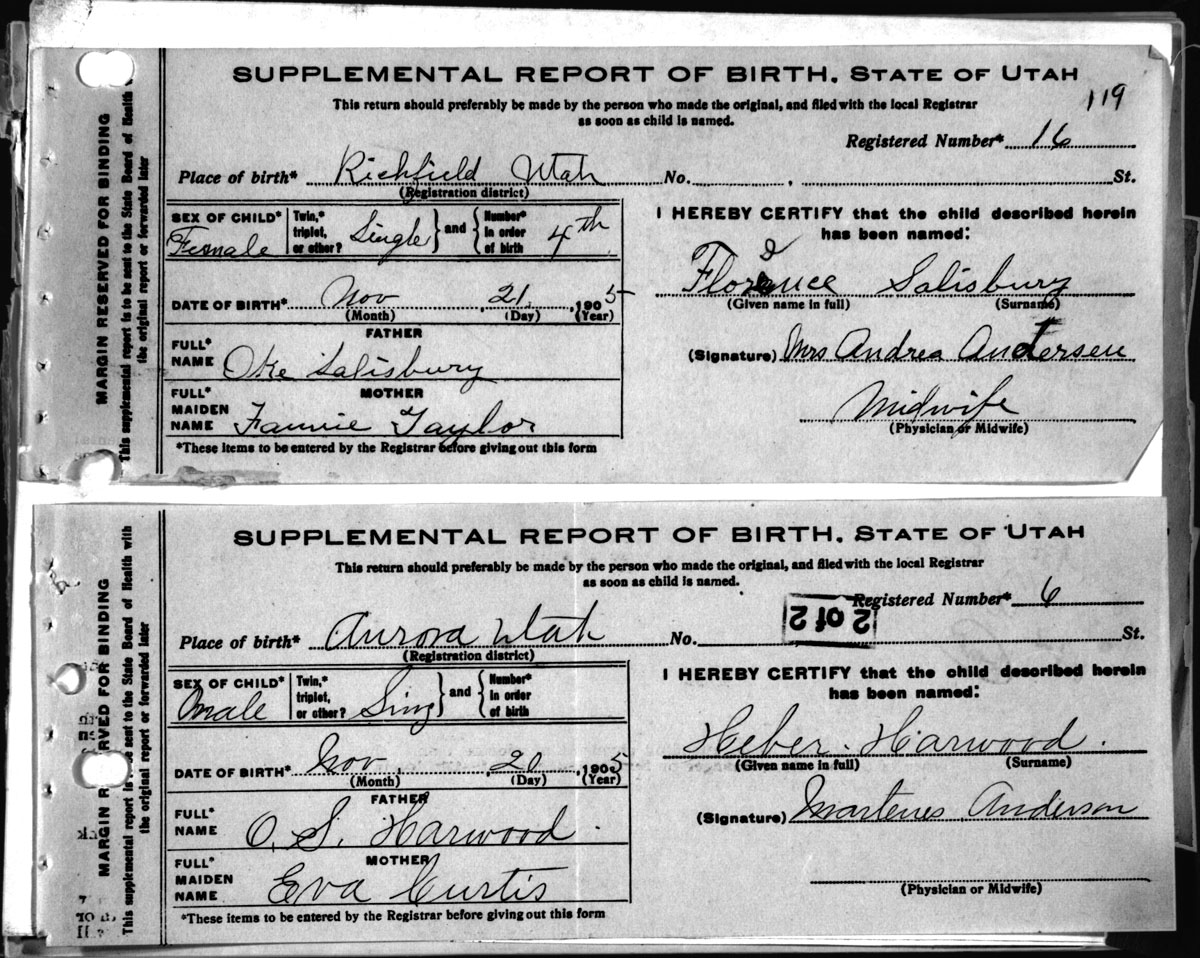 SUPPLEMENTAL REPORT OF BIRTH, STATE OF UTAH
119
This return should preferably be made by the person who made the original, and filed with the local Registrar
as soon as child is named.
Registered Number* 16
Place of birth* Richfield Utah No. , St.
(Registration district)
SEX OF CHILD* Female Twin,* triplet, or other? Single and Number* in order of birth 4th
I HEREBY CERTIFY that the child described herein
has been named:
Florence Salisbury
(Given name in full) (Surname)
DATE OF BIRTH* Nov , 21, , 1905
(Month) (Day) (Year)
FATHER
FULL* NAME Oke Salisbury
(Signature) Mrs Andrea Andersen
MOTHER
FULL* MAIDEN NAME Fannie Taylor
Midwife
(Physician or Midwife)
*These items to be entered by the Registrar before giving out this form
MARGIN RESERVED FOR BINDING
This supplemental report is to be sent to the State Board of Health
the original report or forwarded later
SUPPLEMENTAL REPORT OF BIRTH, STATE OF UTAH
This return should preferably be made by the person who made the original, and filed with the local Registrar
as soon as child is named.
Registered Number* 6
2 of 2
Place of birth* Aurora Utah No. St.
(Registration district)
SEX OF CHILD* Male Twin,* triplet, or other? Sing and Number* in order of birth
I HEREBY CERTIFY that the child described herein
has been named:
Heber Harwood.
(Given name in full) (Surname)
DATE OF BIRTH* Nov , 20 , 1905
(Month) (Day) (Year)
FATHER
FULL* NAME O. S. Harwood.
(Signature) Martenes Anderson
MOTHER
FULL* MAIDEN NAME Eva Curtis
(Physician or Midwife)
*These items to be entered by the Registrar before giving out this form
MARGIN RESERVED FOR BINDING
This supplemental report is to be sent to the State Board of Health with
the original report or forwarded later